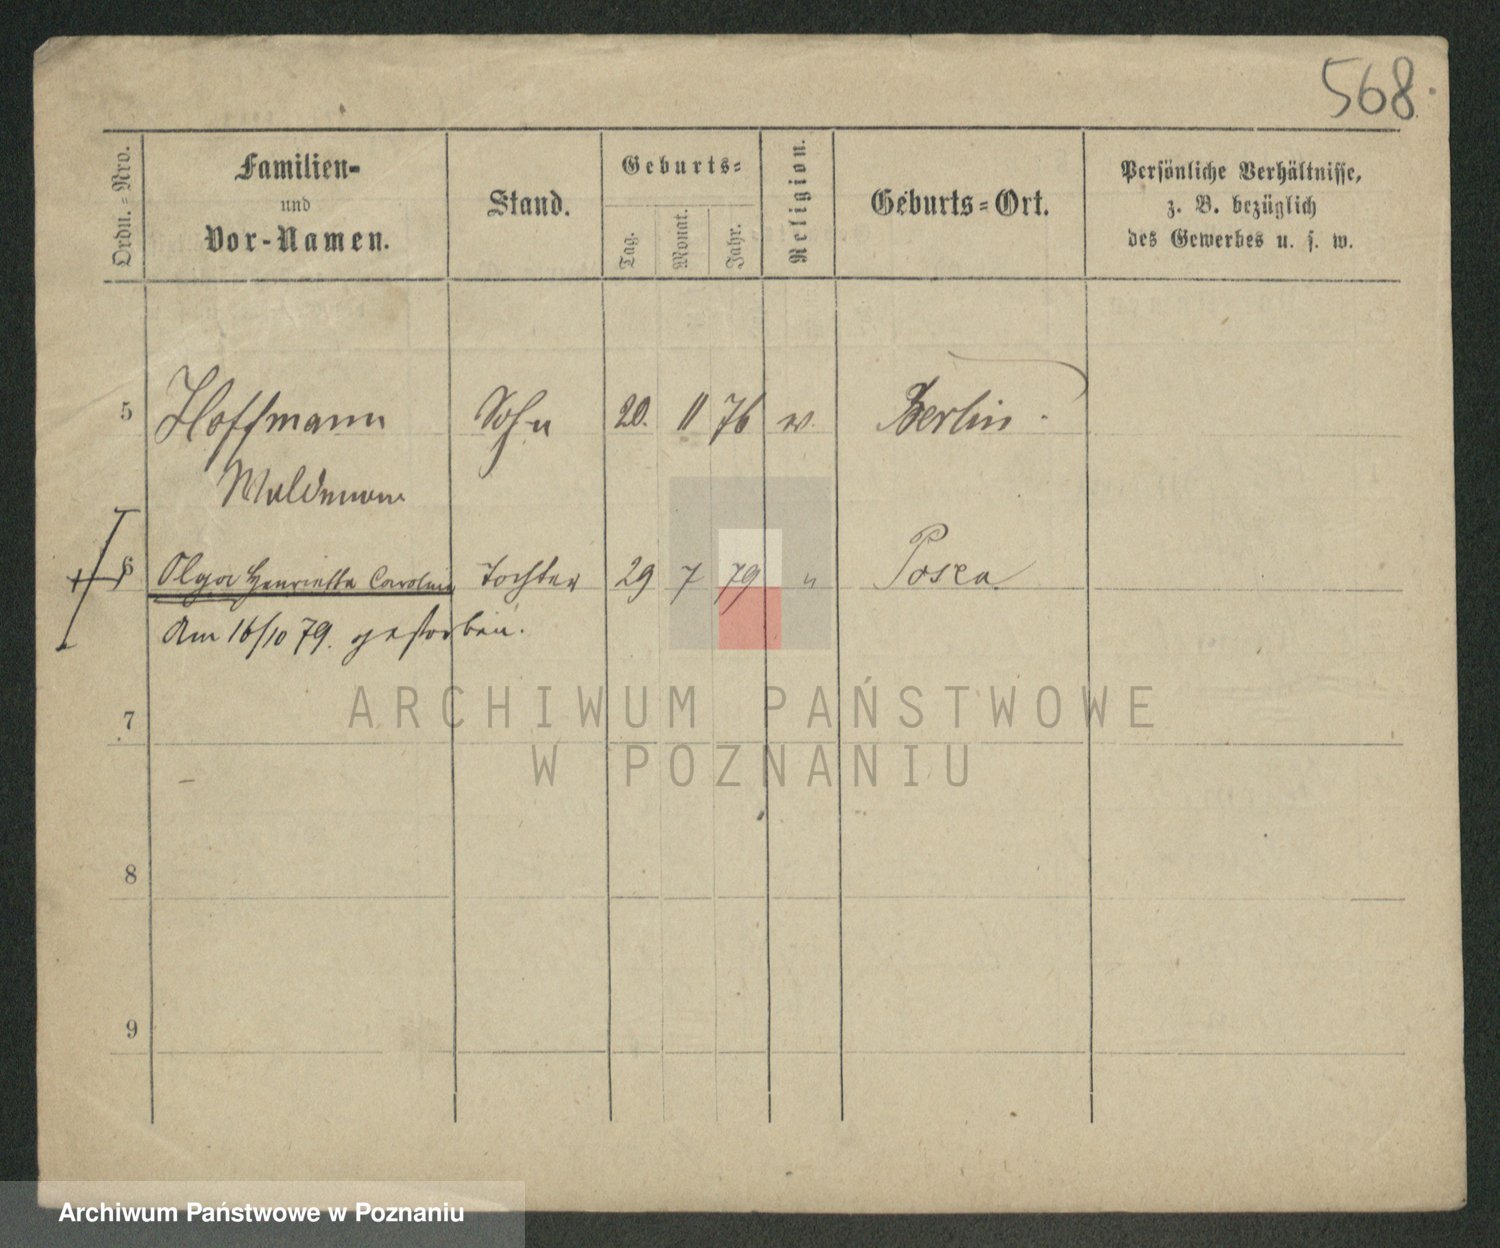 568.
Ordn.-Nro.
Familien-
und
Vor-Namen.
Stand.
Geburts-
Tag.
Monat.
Jahr.
Religion.
Geburts-Ort.
Persönliche Verhältnisse,
z. B. bezüglich
des Gewerbes u. s. w.
5 Hoffmann Sohn 20. 11 76 Berlin.
Waldemar
6 Olga Henriette Caroline Tochter 29 7 79 " Posen
Am 16/10 79. gestorben.
7
8
9
ARCHIWUM PAŃSTWOWE
W POZNANIU
Archiwum Państwowe w Poznaniu